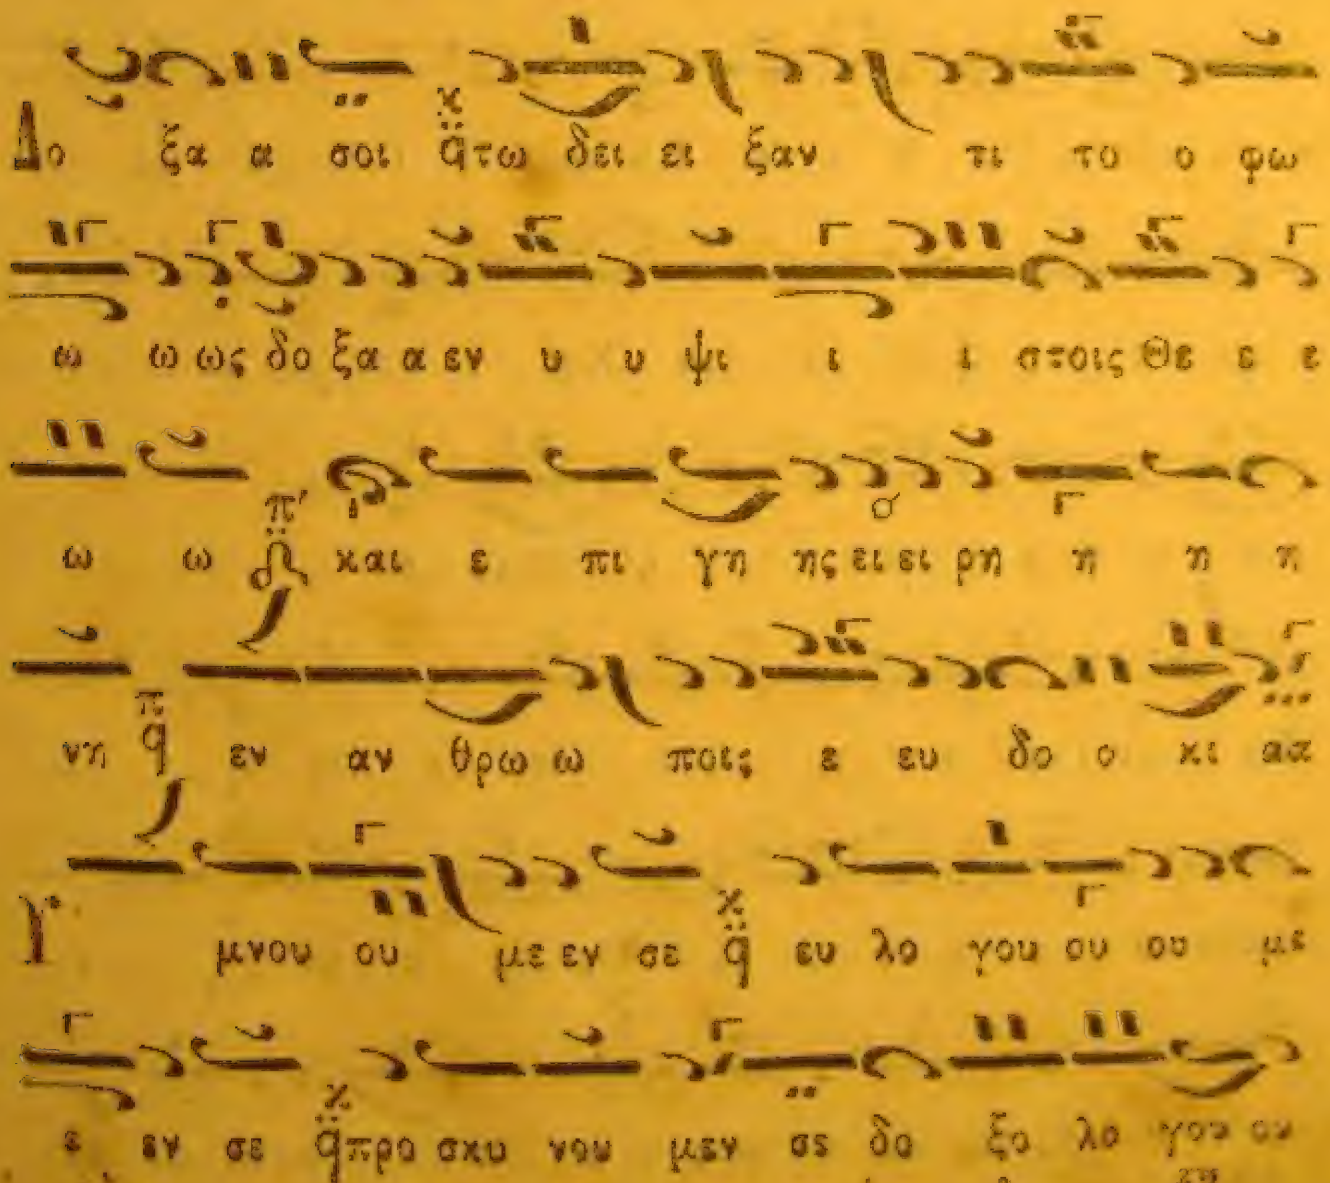 Δο ξα α σοι τω δει ει ξαν τι το ο φω
ω ω ως δο ξα α εν υ υ ψι ι ι στοις Θε ε ε
ω ω π' και ε πι γη ης ει ει ρη η η η
νη π εν αν θρω ω ποις ε ευ δο ο κι αα
Υ μνου ου με εν σε ευ λο γου ου ου με
ε εν σε προ σκυ νου μεν σε δο ξο λο γου ου